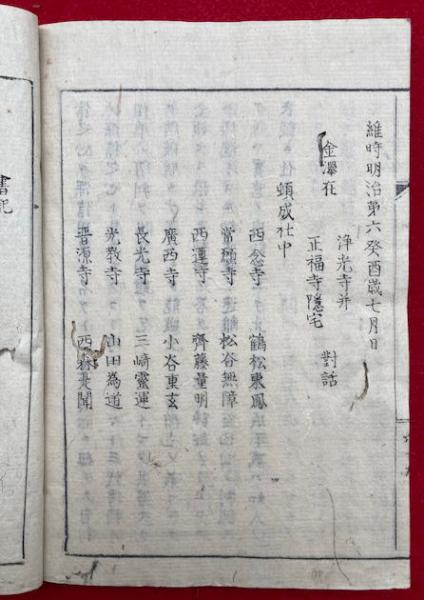 維時明治第六癸酉歳七月日
浄光寺并
金澤在
正福寺隠宅
對話
頓成社中
西念寺 鶴松東鳳
常願寺 松谷無障
西運寺 齊藤量明
廣西寺 小谷重玄
長光寺 三崎靈運
光教寺 山田為道
晋源寺 西森是聞
書記